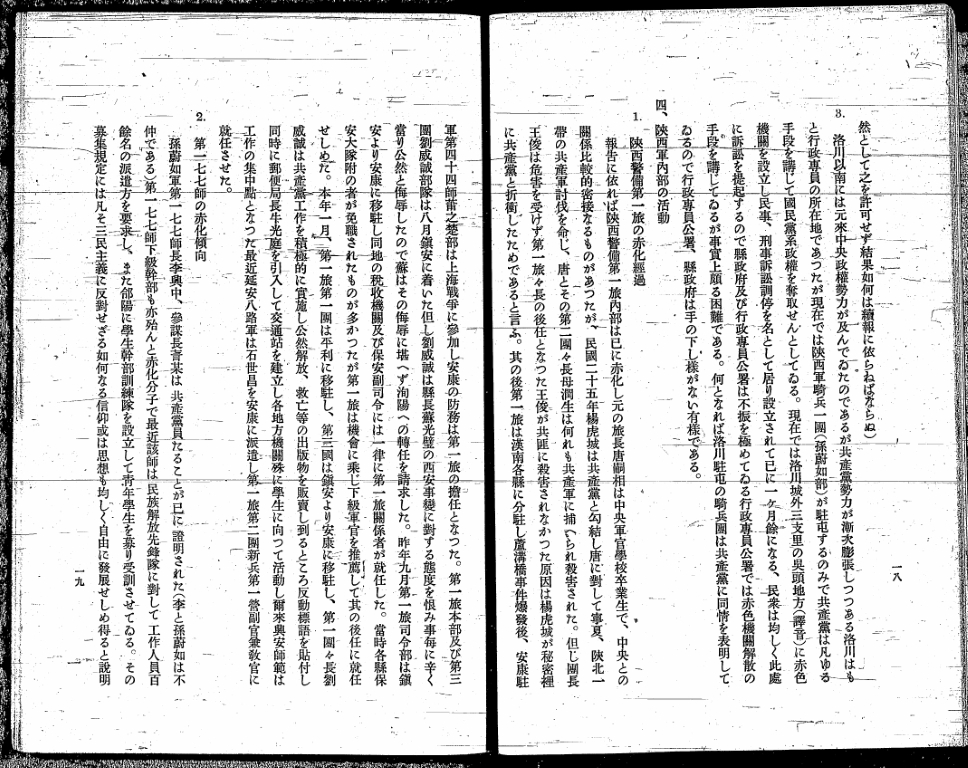 然として之を許可せず結果如何は續報に依らねばならぬ)
3. 洛川以南には元來中央政權勢力が及んでゐたのであるが共產黨勢力が漸次膨張しつつある洛川はも
と行政專員の所在地であつたが現在では陝西軍騎兵一團(孫蔚如部)が駐屯するのみで共產黨は凡ゆる
手段を講じて國民黨系政權を奪取せんとしてゐる。現在では洛川城外三支里の吳頭地方(譯音)に赤色
機關を設立し民事、刑事訴訟調停を名として居り設立されて已に一ケ月餘になる、民衆は均しく此處
に訴訟を提起するので縣政府及び行政專員公署は不振を極めてゐる行政專員公署では赤色機關解散の
手段を講じてゐるが事實上頗る困難である。何となれば洛川駐屯の騎兵團は共產黨に同情を表明して
ゐるので行政專員公署、縣政府は手の下し樣がない有樣である。
四、陝西軍內部の活動
1. 陝西警備第一旅の赤化經過
報告に依れば陝西警備第一旅內部は已に赤化し元の旅長唐嗣相は中央軍官學校卒業生で、中央との
關係比較的密接なるものがあつたが、民國二十五年楊虎城は共產黨と勾結し唐に對して寧夏、陝北一
帶の共產軍討伐を命じ、唐とその第二團々長母潤生は何れも共產軍に捕へられ殺害された。但し團長
王俊は危害を受けず第一旅々長の後任となつた王俊が共匪に殺害されなかつた原因は楊虎城が秘密裡
に共產黨と折衝したためであると言ふ。其の後第一旅は漢南各縣に分駐し蘆溝橋事件爆發後、安康駐
一八
軍第四十四師蕭之楚部は上海戰爭に參加し安康の防務は第一旅の擔任となつた。第一旅本部及び第三
團劉威誠部隊は八月鎭安に着いた但し劉威誠は縣長蘇光璧の西安事變に對する態度を恨み事每に辛く
當り公然と侮辱したので蘇はその侮辱に堪へず洵陽への轉任を請求した。昨年九月第一旅司令部は鎭
安より安康に移駐し同地の稅收機關及び保安副司令には一律に第一旅關係者が就任した。當時各縣保
安大隊附の者が免職されたものが多かつたが第一旅は機會に乘じ下級軍官を推薦して其の後任に就任
せしめた。本年一月、第一旅第一團は平利に移駐し、第三國は鎭安より安康に移駐し、第一團々長劉
威誠は共產黨工作を積極的に實施し公然解放、救亡等の出版物を販賣し到るところ反動標語を貼付し
同時に郵便局長牛光庭を引入して交通站を建立し各地方機關殊に學生に向つて活動し爾來興安師範は
工作の集中點となつた最近延安八路軍は石世昌を安康に派遣し第一旅第二團新兵第一營副官兼敎官に
就任させた。
2. 第一七七師の赤化傾向
孫蔚如軍第一七七師長李興中、參謀長 某は 共產黨員たることが已に 證明された(李と孫蔚如は不
仲である)第一七七師下級幹部も亦殆んど赤化分子で最近該師は民族解放先鋒隊に對して 工作人員百
餘名の派遣方を要求し、また郃陽に學生幹部訓練隊を設立して靑年學生を募り受訓させてゐる。その
募集規定には凡そ三民主義に反對せざる如何なる信仰或は思想も均しく自由に發展せしめ得ると說明
一九